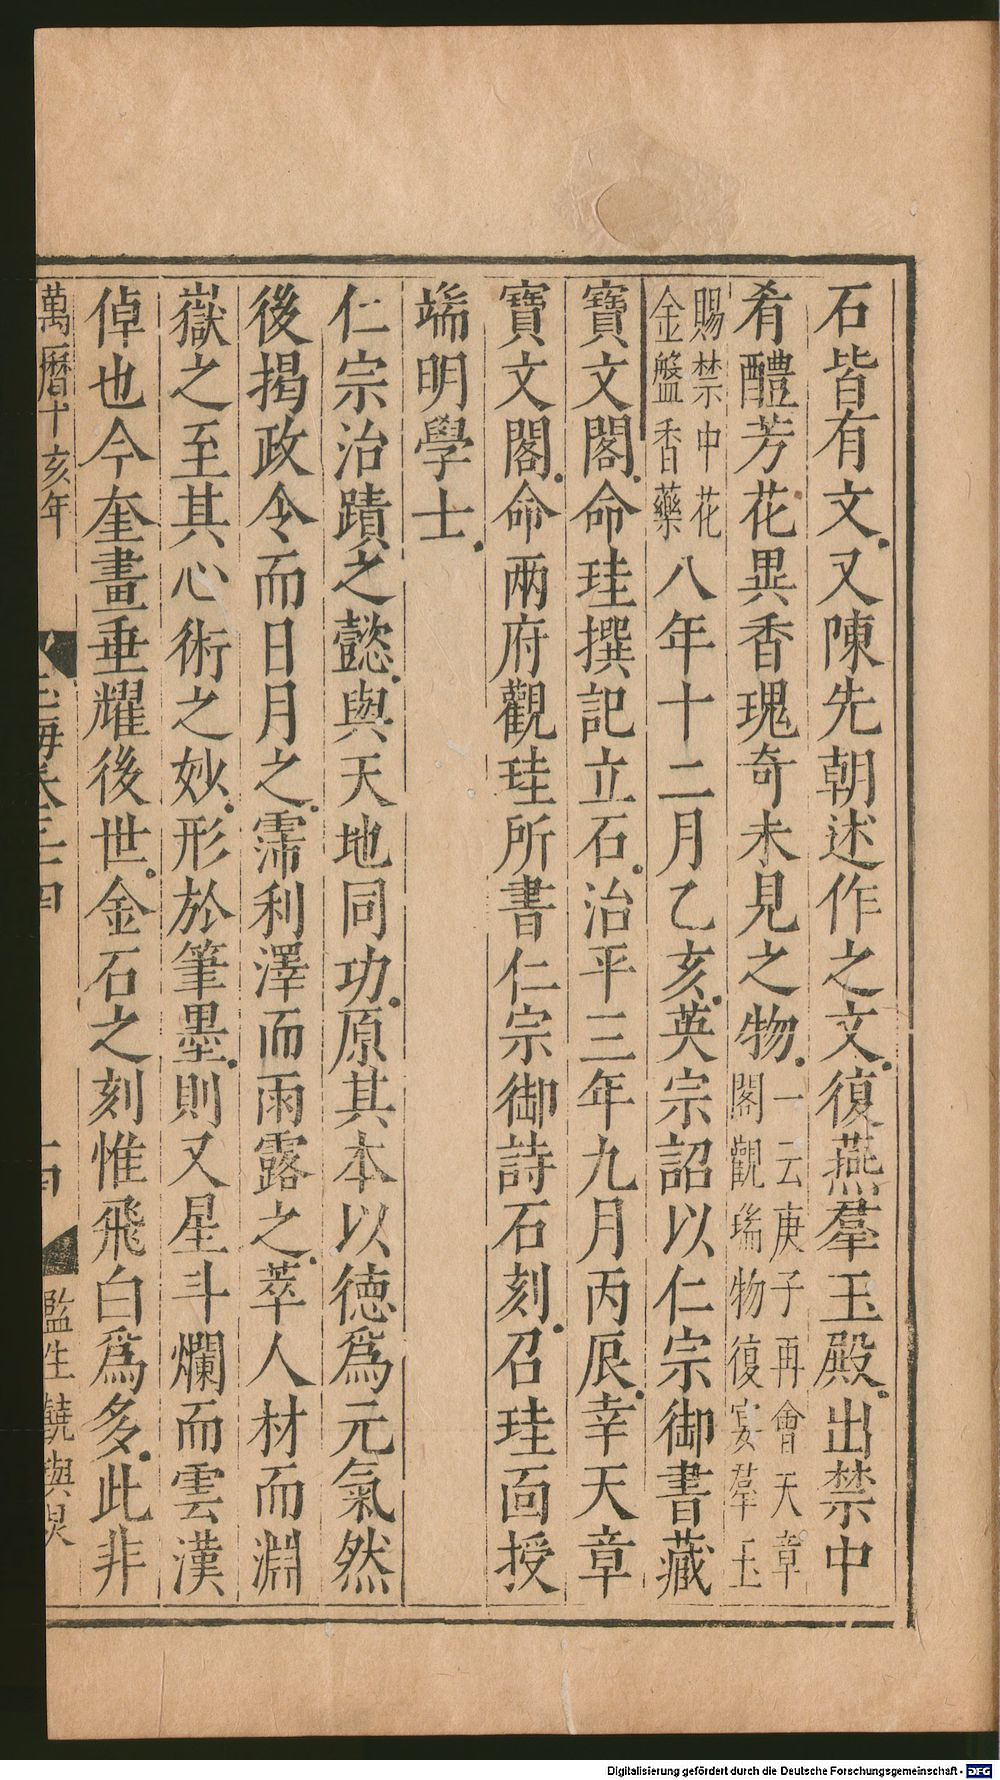 石皆有文又陳先朝述作之文復燕羣玉殿出禁中
肴醴芳花異香瑰奇未見之物一云庚子再會天章
閣觀瑞物復宴羣玉
賜禁中花
金盤香藥八年十二月乙亥英宗詔以仁宗御書藏
寶文閣命珪撰記立石治平三年九月丙辰幸天章
寶文閣命兩府觀珪所書仁宗御詩石刻召珪面授
端明學士
仁宗治蹟之懿與天地同功原其本以德爲元氣然
後揭政令而日月之霈利澤而雨露之萃人材而淵
嶽之至其心術之妙形於筆墨則又星斗爛而雲漢
倬也今奎畫垂耀後世金石之刻惟飛白爲多此非
萬曆 亥年
海卷 四
監生 與
Digitalisierung gefördert durch die Deutsche Forschungsgemeinschaft - DFG